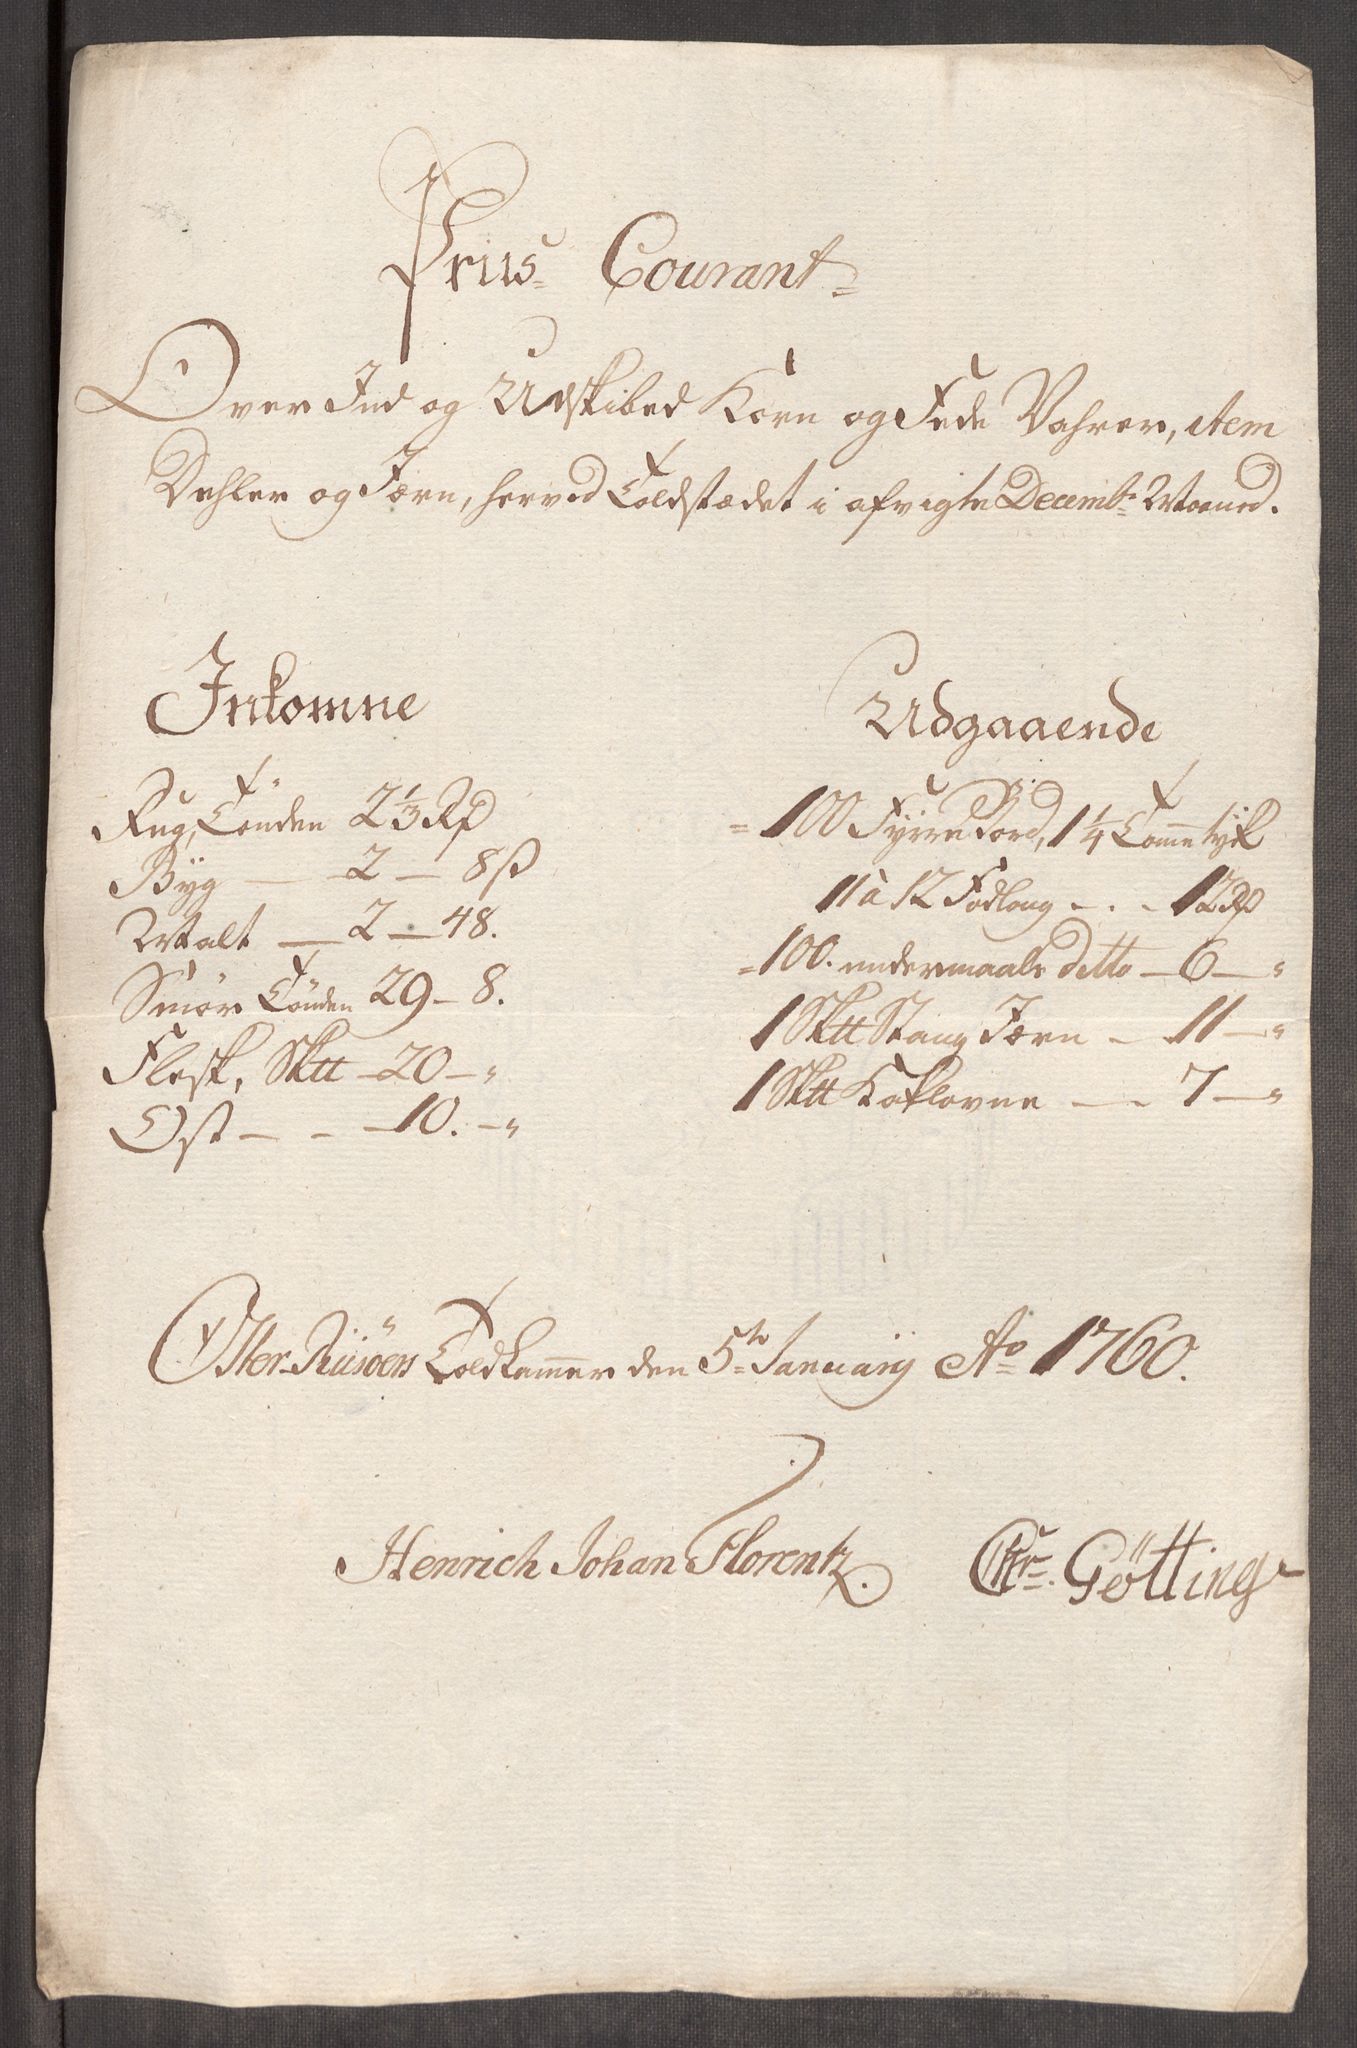 Priis Courant
Over Ind og Udskibed Korn og Fede Vahrer, item
Dehler og Jærn, herved Toldstædet i afvigte Decembr Maaned.
Inkomne
Rug, Tønden 2 1/3 Rd
Byg — 2 — 8 ß
Malt — 2 — 48.
Smør Tønden 29 — 8.
Flesk, Sktt — 20 — "
Ost — — 10. — "
Udgaaende
= 100 Fyrre Bord, 1 1/4 Tomme tyk
11 à 12 Fod lang - . - 12 Rd
= 100. undermaals ditto — 6 — "
1 Sktt Stang Jærn — 11 — "
1 Sktt Kaklovne — . 7 — "
Øster-Riisöers Toldkammer den 5te Januarij Ao 1760.
Henrich Johan Florentz. Chr. Götting